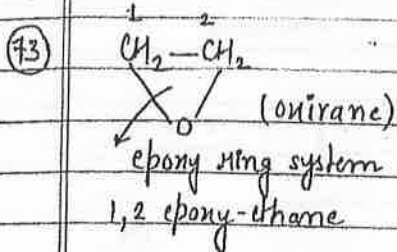 73
1 2
CH2 — CH2
O
(oxirane)
epoxy ring system
1,2 epoxy-ethane